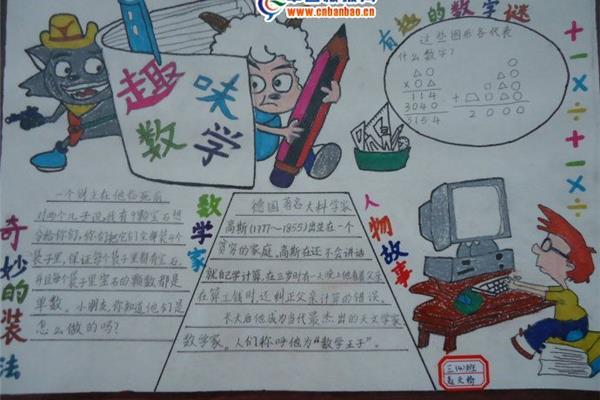 www.cnbanbao.cn
趣味
数学
有趣的数字谜
这些图形各代表
什么数字?
△○
×○△
114
3040
3154
○
△○
□△○
+□○△○
2000
奇妙的装法
一个财主在他临死前
对两个儿子说,我有9颗宝石想
分给你们,你们把它们全装4个
袋子里,保证每个袋子都有宝石,
并且每个袋子里宝石的颗数都是
单数。小朋友,你知道他们是
怎么做的吗?
数学家
德国著名大科学家
高斯(1777~1855)出生在一个
贫穷的家庭。高斯在还不会讲话
就自己学计算,在三岁时有一天晚上他看着父亲
在算工钱时,还纠正父亲计算的错误。
长大后他成为当代最杰出的天文学家
数学家。人们称呼他为“数学王子”。
人物故事
+-×÷+-×÷
三(4)班